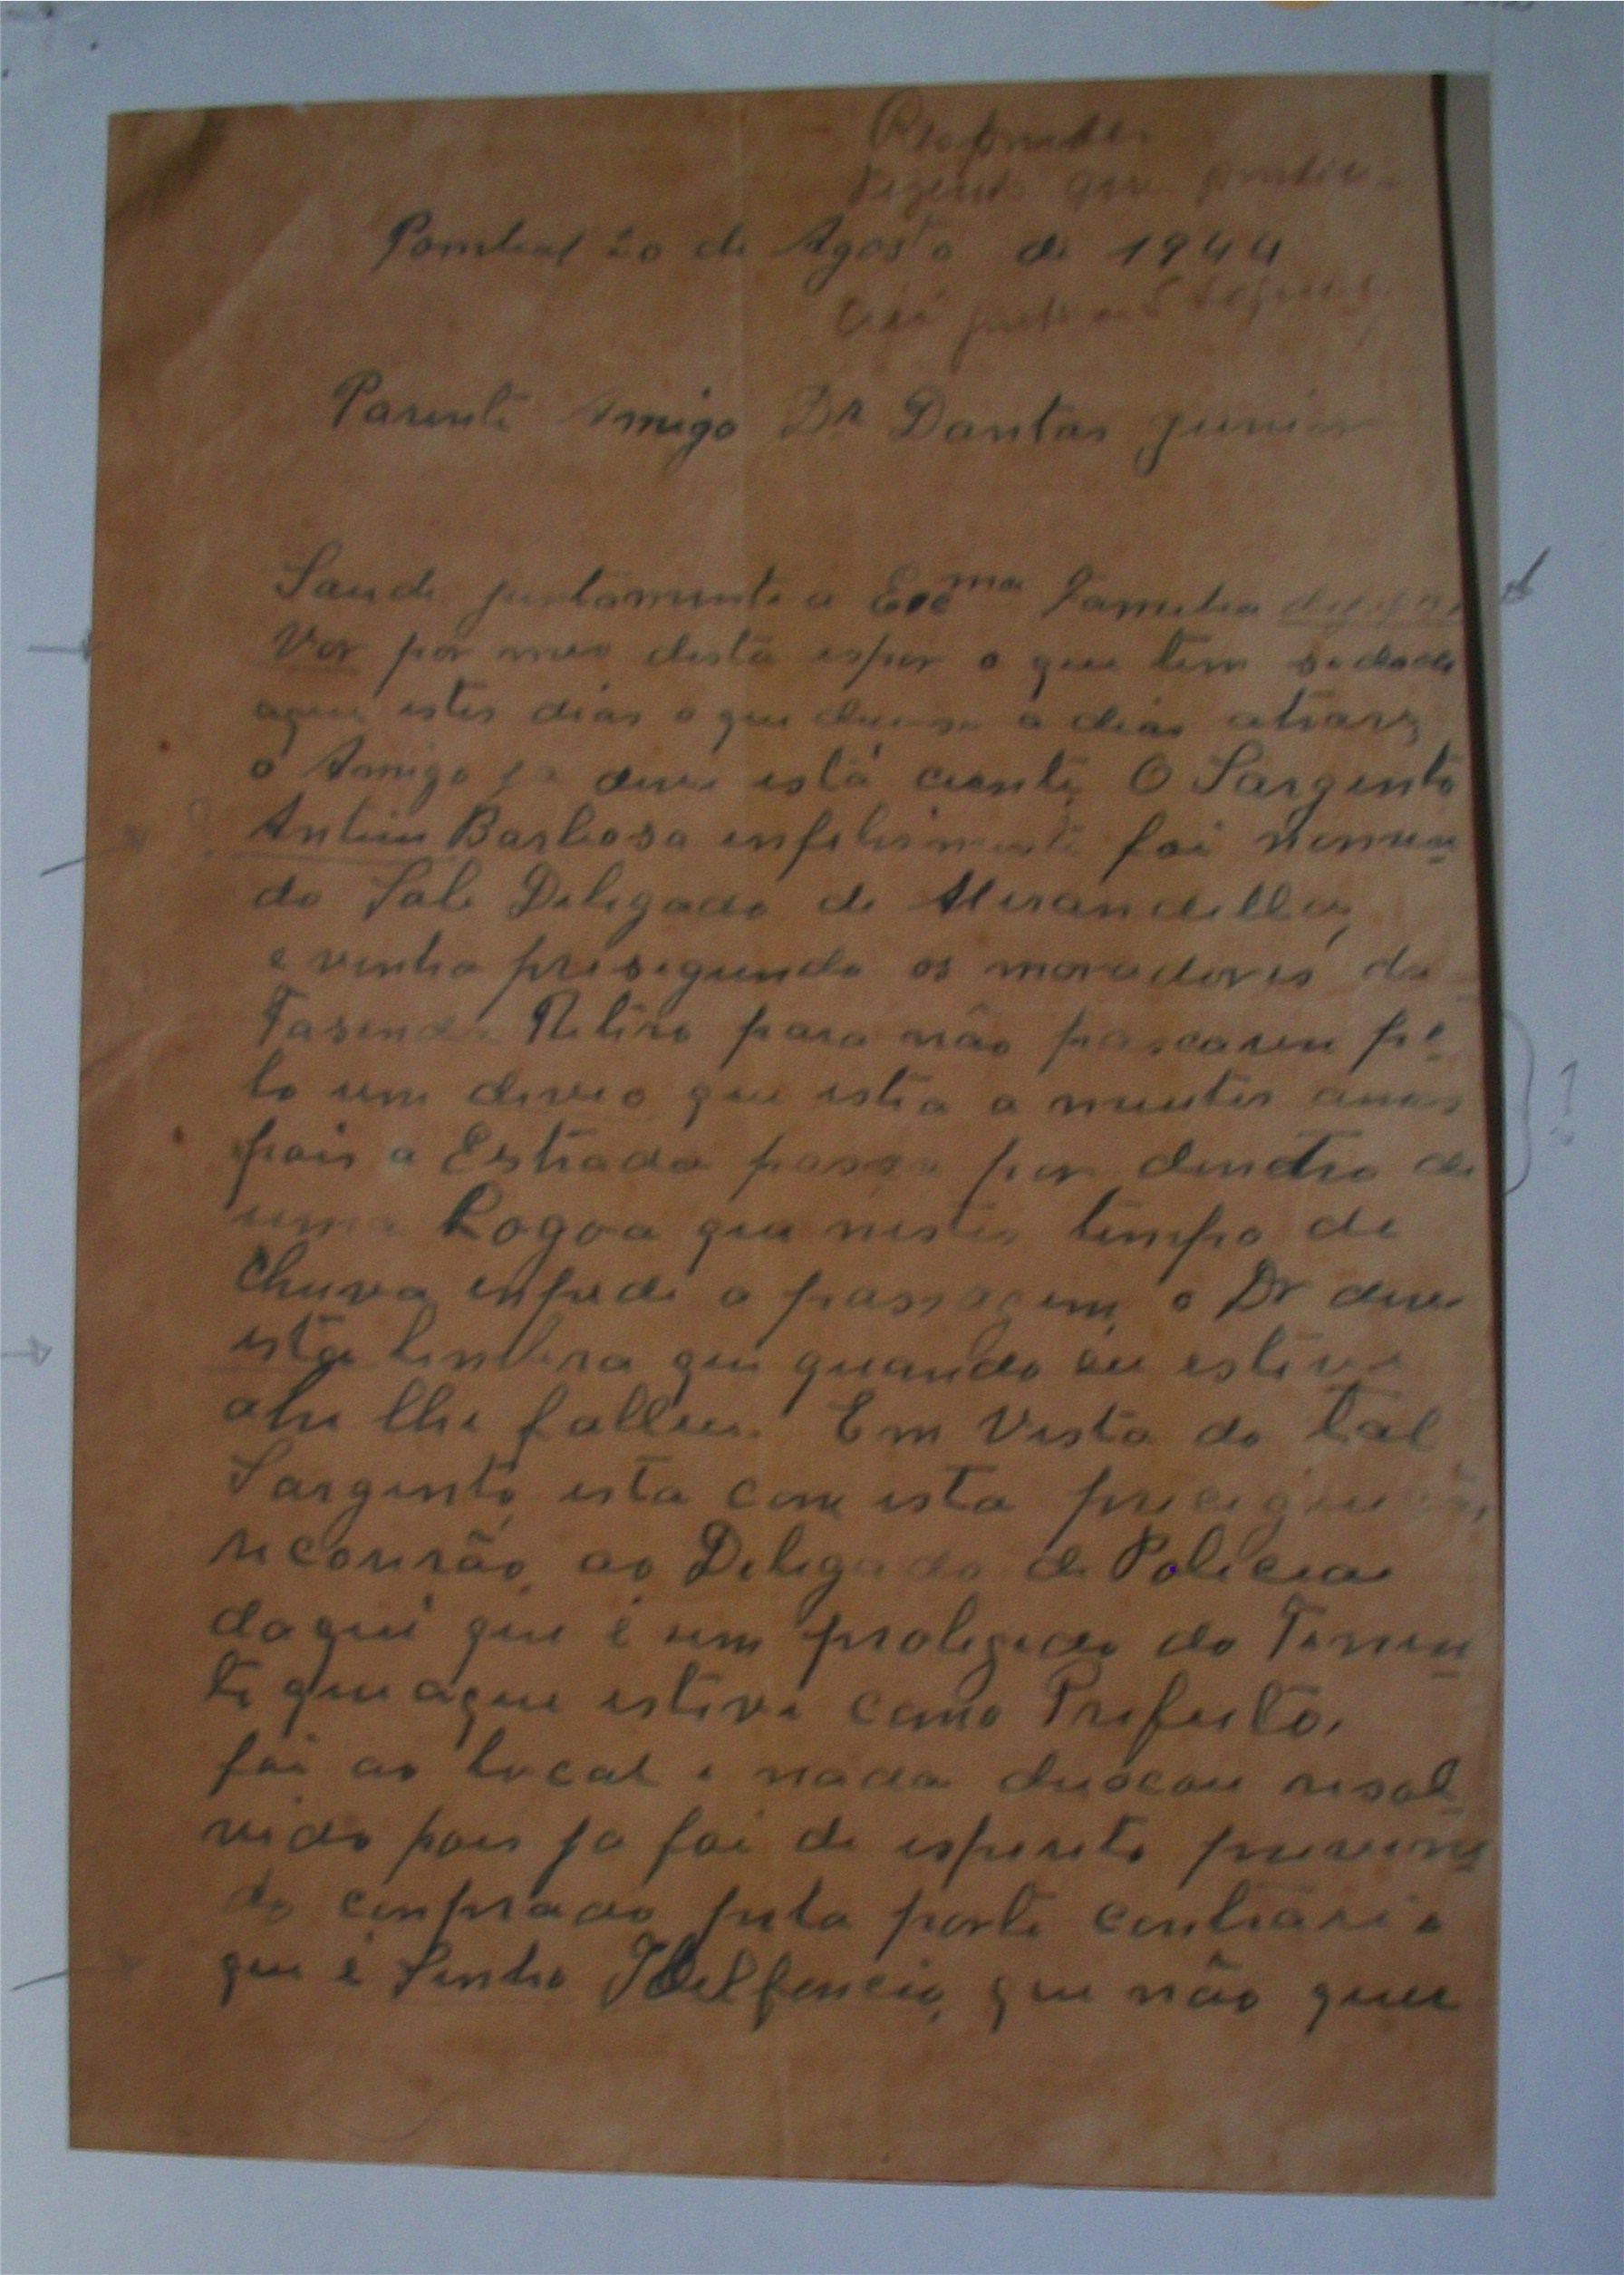 Respondi
dizendo que
Pombal 20 de Agosto de 1944
Parente Amigo Dr Dantas Junior
Saude juntamente a Excma Familia
Vor por meio desta espor o que tem se dado
aqui estes dias o que a dias atrarz
o Amigo ja deve está ciente, O Sargento
Barbosa infelismente foi nomea
do Sob Deligado de Mirandella,
e vinha presegundo os moradores da
Fasenda Retiro para não pascarem p
lo um desvio que estia a muntos anos
pois a Estrada passa por dentro de
uma Logoa que nestes tempo de
Chuva enpede a passagem, o Dr deve
está lenbera que quando eu estive
ahi lhe fallei. Em Vista do tal
Sargento, esta com esta
recorrão, ao Deligado de Policia
daqui que é um protegido do Tenen
te que aqui estive como Prefeito,
foi ao local e nada deixou resol
vido pois ja foi de esperito preveni
do conprado pela parte contraria
que é Sinho Ildelfoncio, que não quer